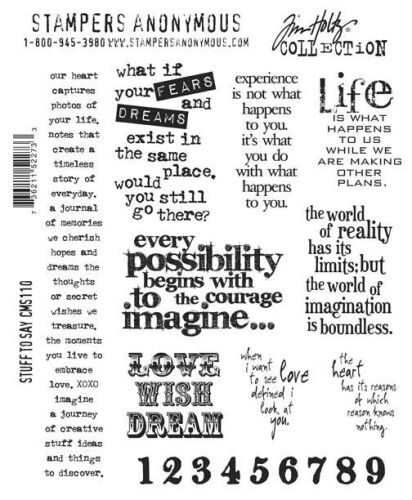 STAMPERS ANONYMOUS
1-800-945-3980 WWW.STAMPERSANONYMOUS.COM
Tim Holtz®
COLLECTION
our heart
captures
photos of
your life,
notes that
create a
timeless
story of
everyday.
a journal
of memories
we cherish
hopes and
dreams the
thoughts
or secret
wishes we
treasure.
the moments
you live to
embrace
love. XOXO
imagine
a journey
of creative
stuff ideas
and things
to discover.
7 36211 52273 3
STUFF TO SAY CMS110
what if
your FEARS
and
DREAMS
exist in
the same
place.
would
you still
go there?
experience
is not what
happens
to you.
it's what
you do
with what
happens
to you.
Life
IS WHAT
HAPPENS
TO US
WHILE WE
ARE MAKING
OTHER
PLANS.
every
possibility
begins with
.to the courage
imagine...
the world
of reality
has its
limits; but
the world of
imagination
is boundless.
LOVE
WISH
DREAM
when
i want
to see love
defined i
look at
you.
the
heart
has its reasons
of which
reason knows
nothing.
1 2 3 4 5 6 7 8 9